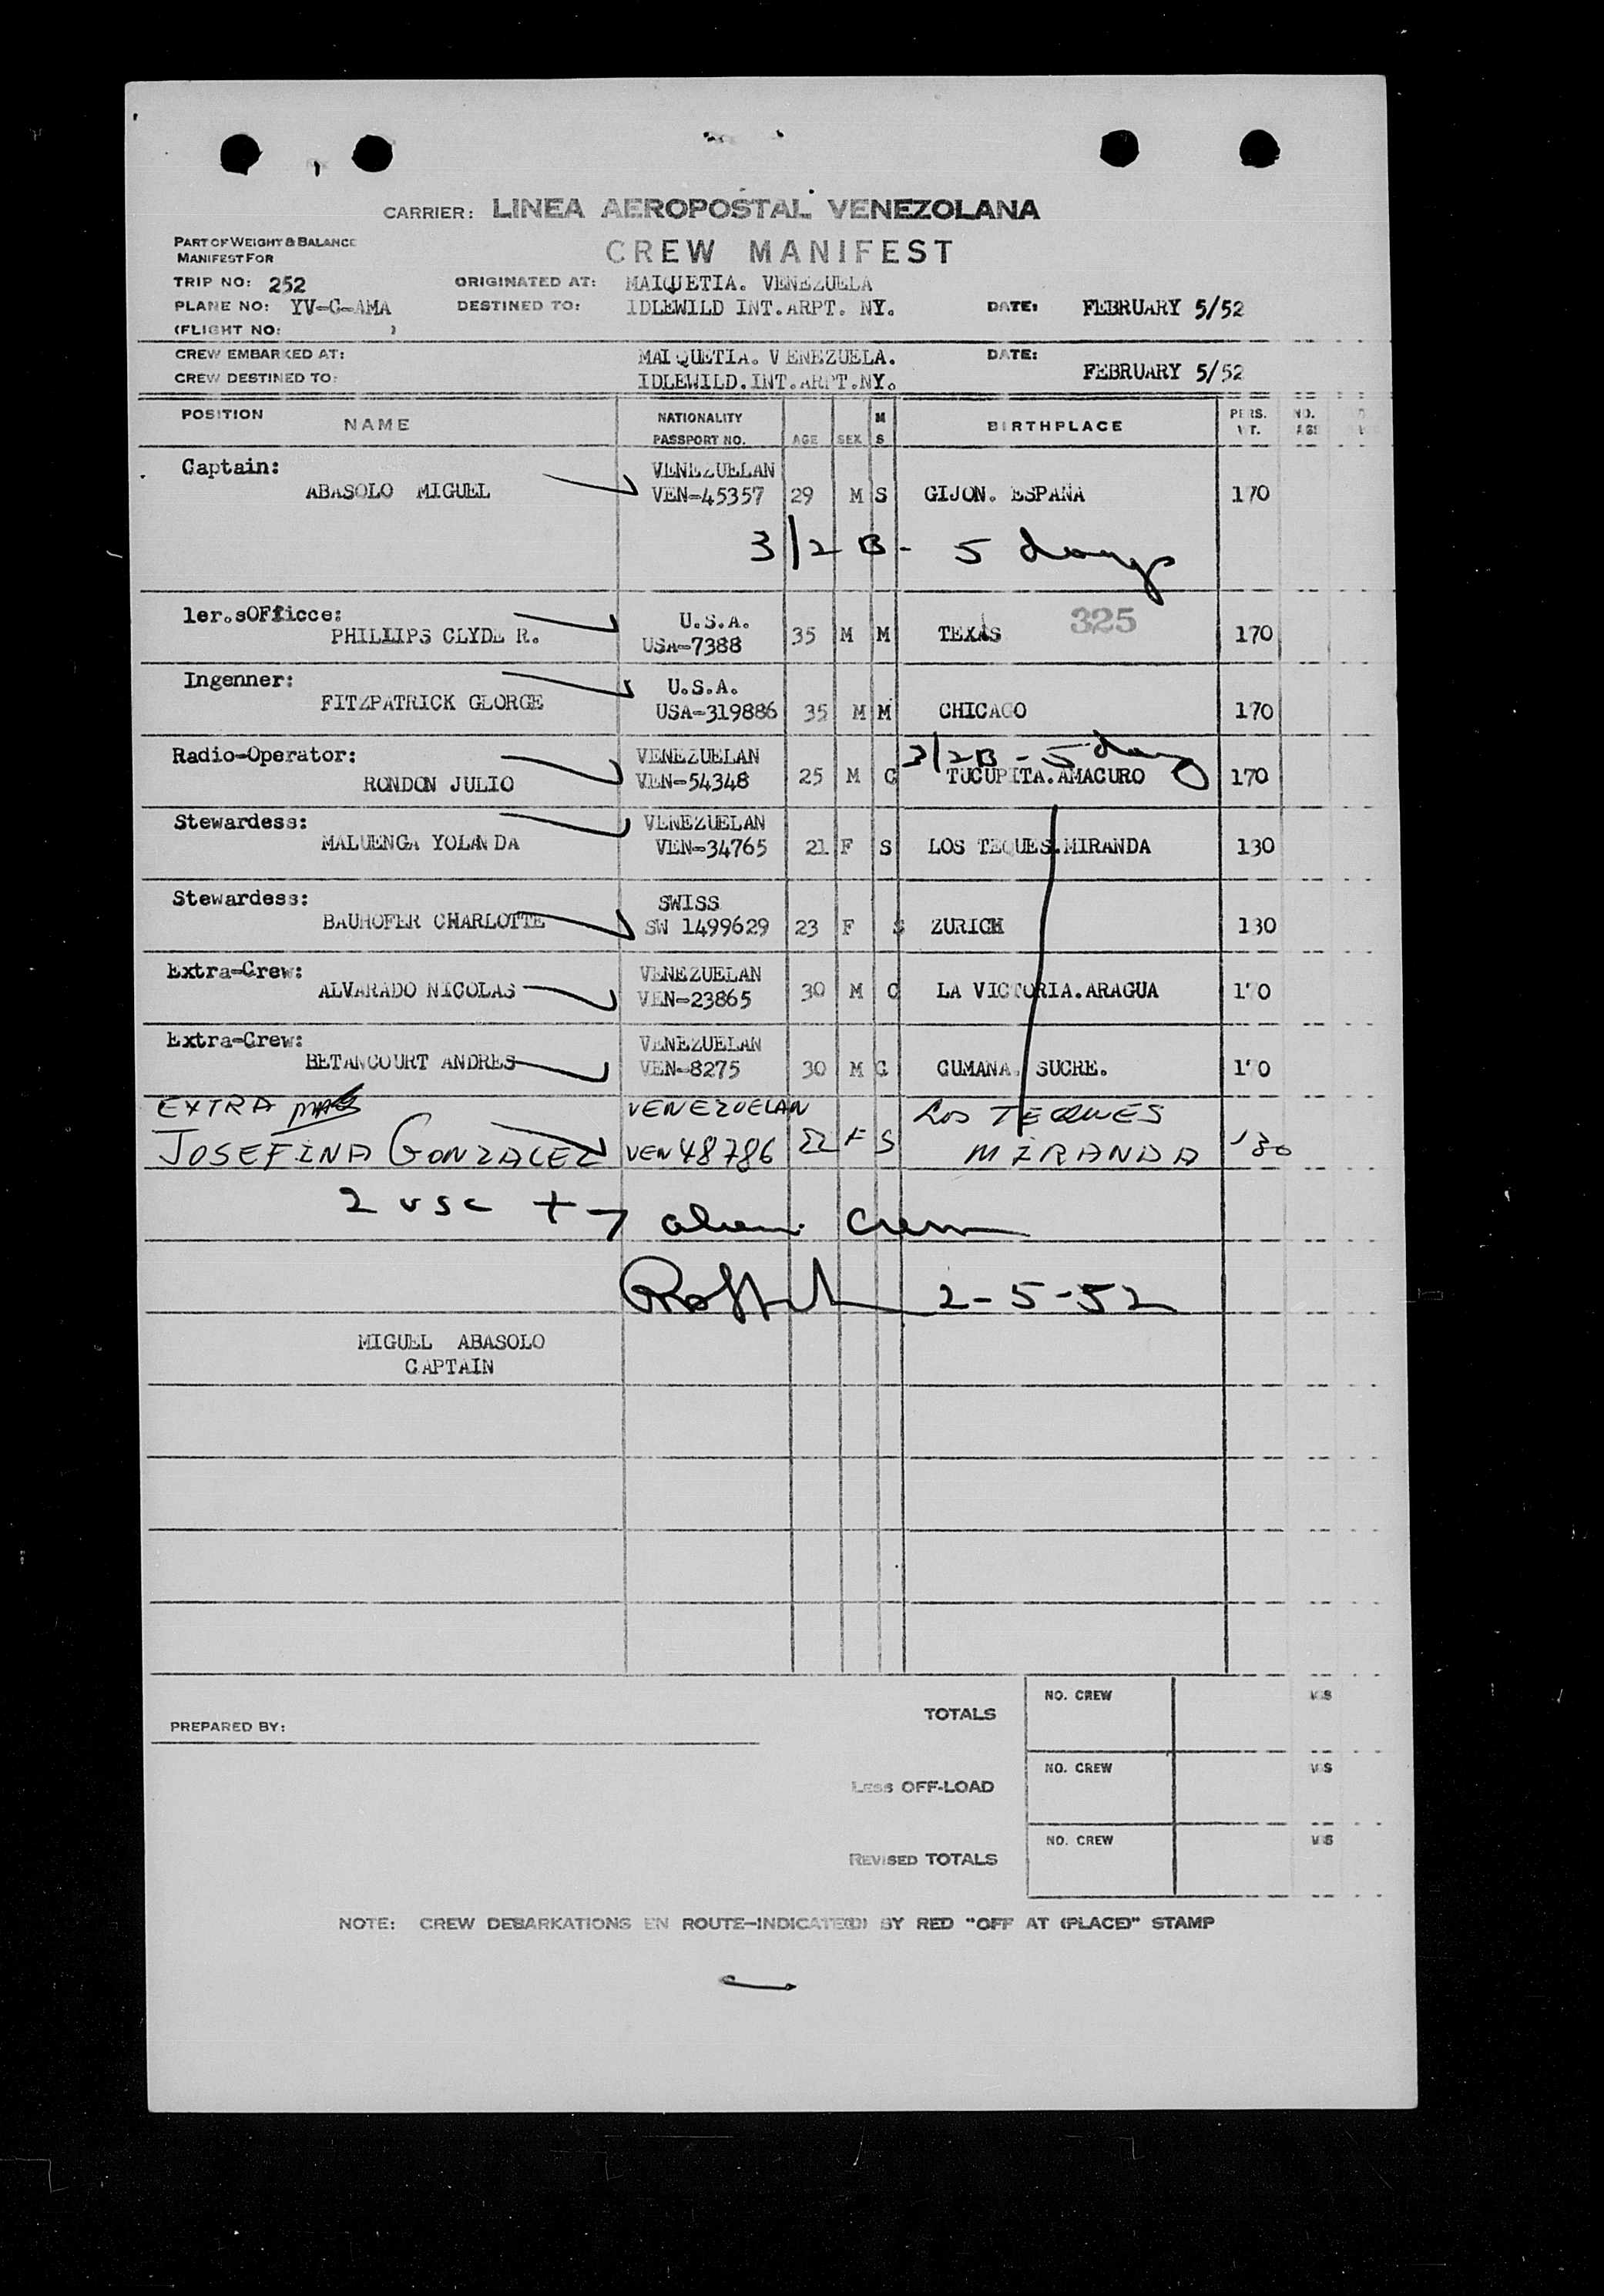 CARRIER: LINEA AEROPOSTAL VENEZOLANA
PART OF WEIGHT & BALANCE
MANIFEST FOR
CREW MANIFEST
TRIP NO: 252 ORIGINATED AT: MAIQUETIA. VENEZUELA
PLANE NO: YV-C-AMA DESTINED TO: IDLEWILD INT.ARPT. NY. DATE: FEBRUARY 5/52
(FLIGHT NO: )
CREW EMBARKED AT: MAIQUETIA. VENEZUELA. DATE:
CREW DESTINED TO: IDLEWILD.INT.ARPT.NY. FEBRUARY 5/52
POSITION NAME NATIONALITY PASSPORT NO. AGE SEX M S BIRTHPLACE PERS. WT. NO.
Captain: VENEZUELAN
ABASOLO MIGUEL VEN-45357 29 M S GIJON. ESPAÑA 170
3/2 B - 5 days
1er.sOFficce: U.S.A. 325
PHILLIPS CLYDE R. USA-7388 35 M M TEXAS 170
Ingenner: U.S.A.
FITZPATRICK GEORGE USA-319886 35 M M CHICAGO 170
Radio-Operator: VENEZUELAN 3/2B - 5 day
RONDON JULIO VEN-54348 25 M C TUCUPITA.AMACURO 170
Stewardess: VENEZUELAN
MALUENGA YOLANDA VEN-34765 21 F S LOS TEQUES.MIRANDA 130
Stewardess: SWISS
BAUHOFER CHARLOTTE SW 1499629 23 F S ZURICH 130
Extra-Crew: VENEZUELAN
ALVARADO NICOLAS VEN-23865 30 M C LA VICTORIA.ARAGUA 170
Extra-Crew: VENEZUELAN
BETANCOURT ANDRES VEN-8275 30 M C CUMANA. SUCRE. 170
EXTRA VENEZUELAN LOS TEQUES
JOSEFINA GONZALEZ VEN 48786 22 F S MIRANDA 130
2 usc + 7 alien crew
2-5-52
MIGUEL ABASOLO
CAPTAIN
TOTALS NO. CREW
PREPARED BY:
LESS OFF-LOAD NO. CREW
REVISED TOTALS NO. CREW
NOTE: CREW DEBARKATIONS EN ROUTE-INDICATE(D) BY RED "OFF AT (PLACE)" STAMP